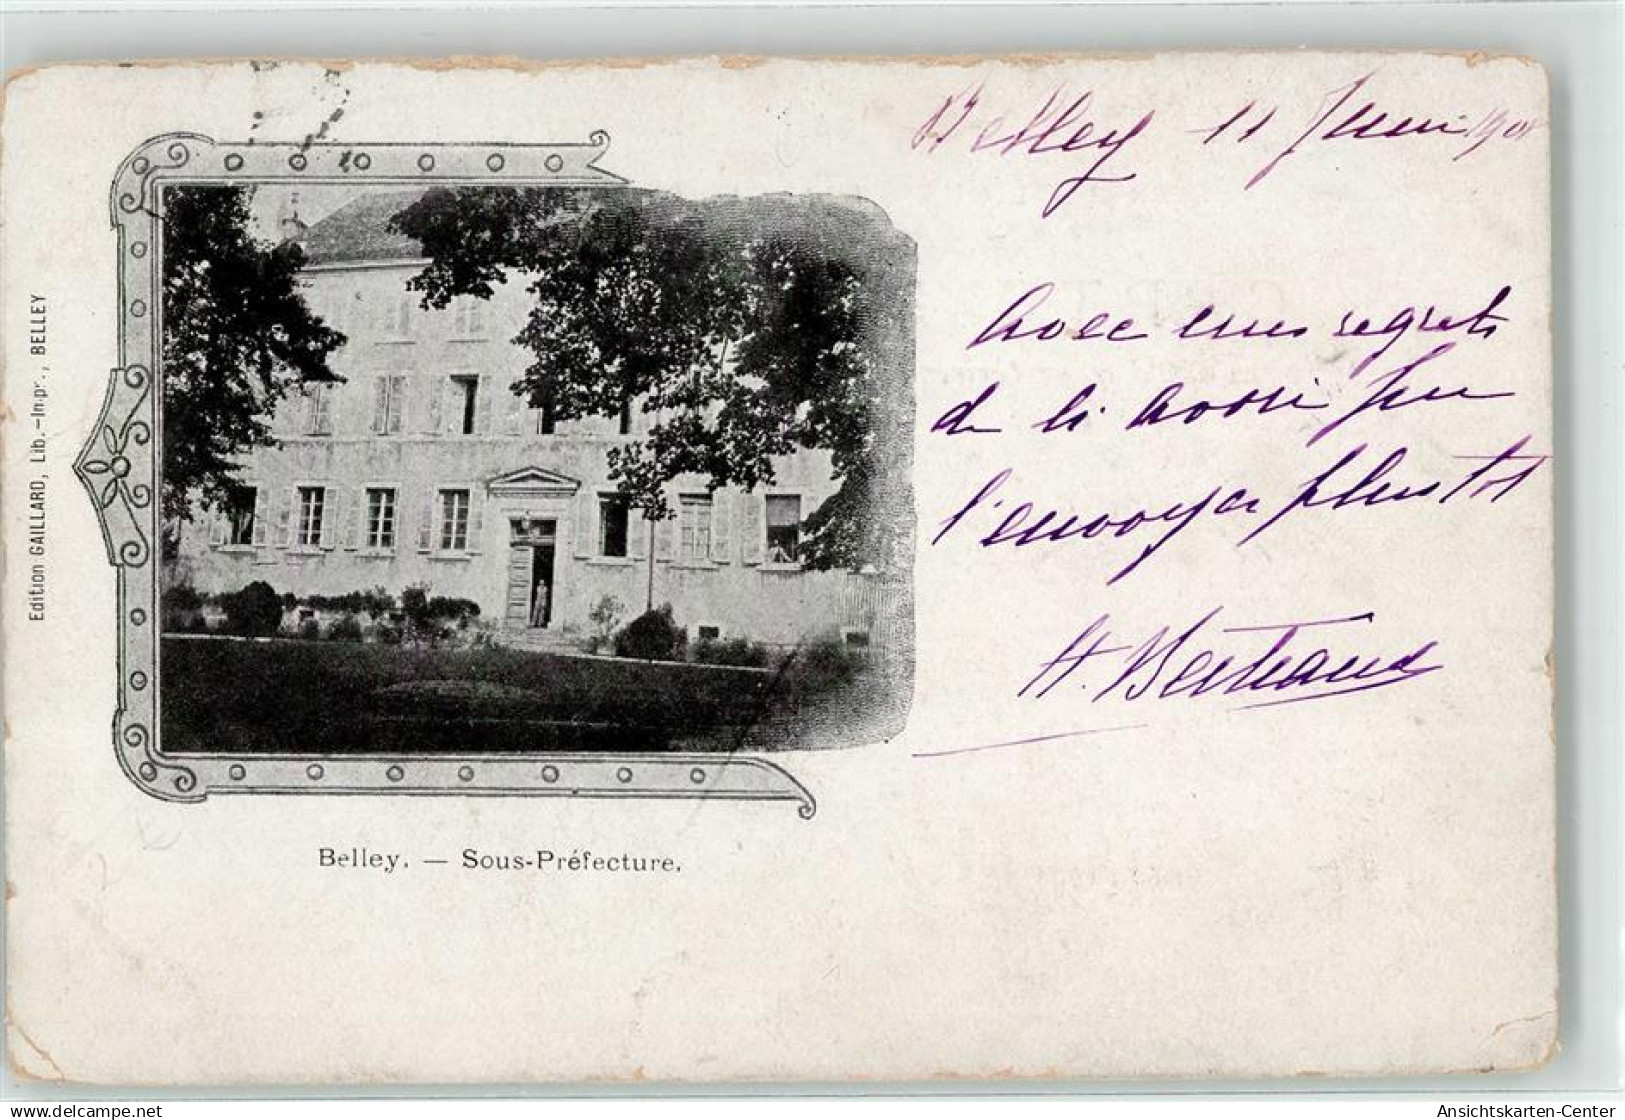 Belley 11 Juin 1901
Avec mes regrets
de
l'envoyer plus tôt
H. Bertrand
Edition GAILLARD, Lib.-Impr., BELLEY
Belley. — Sous-Préfecture.
www.delcampe.net
Ansichtskarten-Center